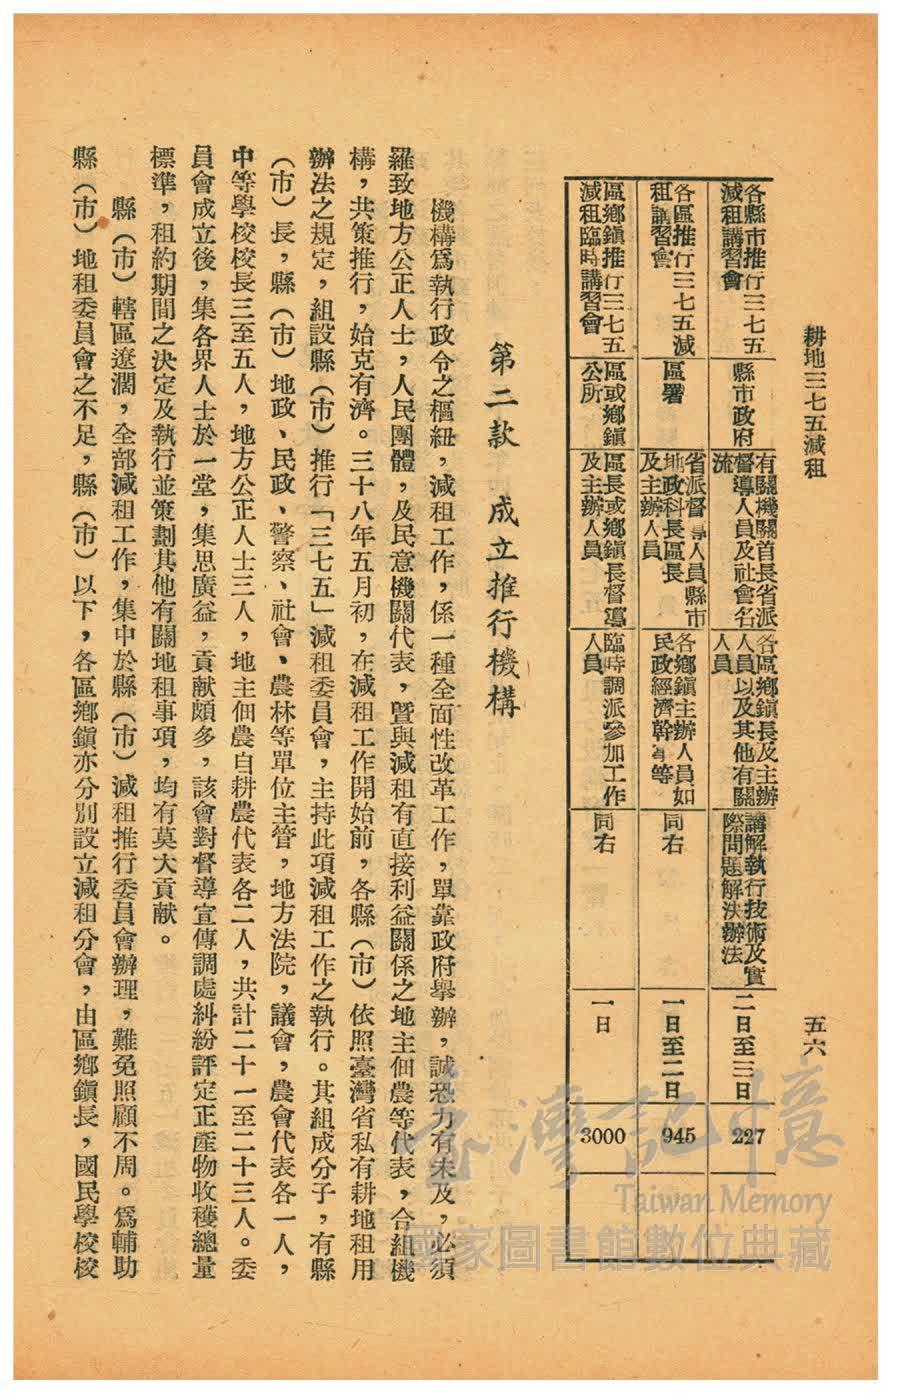 耕地三七五減租
五六
各縣市推行三七五
減租講習會
縣市政府
有關機關首長省派
督導人員及社會名
流
各區鄉鎮長及主辦
人員以及其他有關
人員
講解執行技術及實
際問題解決辦法
二日至三日
227
各區推行三七五減
租講習會
區署
省派督導人員縣市
地政科長區長
及主辦人員
各鄉鎮主辦人員如
民政經濟幹事等
同右
一日至二日
945
區鄉鎮推行三七五
減租臨時講習會
區或鄉鎮
公所
區長或鄉鎮長督導
及主辦人員
臨時調派參加工作
人員
同右
一日
3000
第二款　成立推行機構
機構爲執行政令之樞紐，減租工作，係一種全面性改革工作，單靠政府舉辦，誠恐力有未及，必須
羅致地方公正人士，人民團體，及民意機關代表，暨與減租有直接利益關係之地主佃農等代表，合組機
構，共策推行，始克有濟。三十八年五月初，在減租工作開始前，各縣（市）依照臺灣省私有耕地租用
辦法之規定，組設縣（市）推行「三七五」減租委員會，主持此項減租工作之執行。其組成分子，有縣
（市）長，縣（市）地政、民政、警察、社會、農林等單位主管，地方法院，議會，農會代表各一人，
中等學校校長三至五人，地方公正人士三人，地主佃農自耕農代表各二人，共計二十一至二十三人。委
員會成立後，集各界人士於一堂，集思廣益，貢献頗多，該會對督導宣傳調處糾紛評定正產物收穫總量
標準，租約期間之決定及執行並策劃其他有關地租事項，均有莫大貢献。
縣（市）轄區遼濶，全部減租工作，集中於縣（市）減租推行委員會辦理，難免照顧不周。爲輔助
縣（市）地租委員會之不足，縣（市）以下，各區鄉鎮亦分別設立減租分會，由區鄉鎮長，國民學校校
臺灣記憶
Taiwan Memory
國家圖書館數位典藏